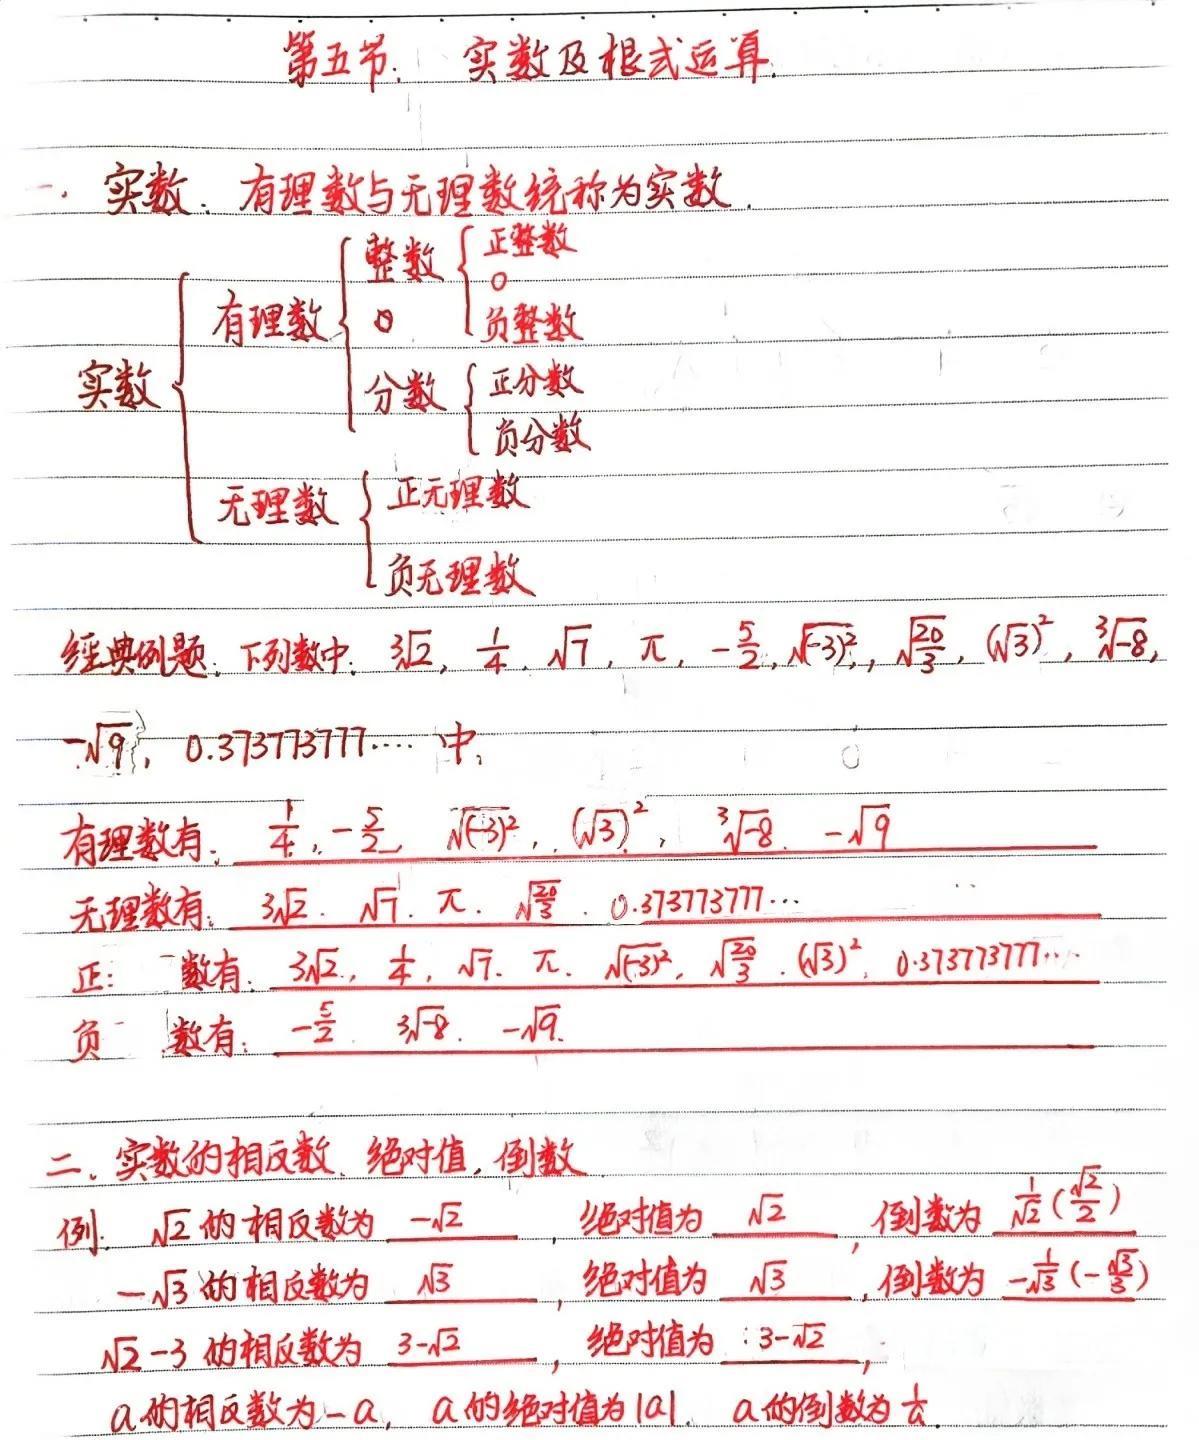 第五节. 实数及根式运算.
一. 实数: 有理数与无理数统称为实数.
整数 { 正整数
0
有理数 { 0 负整数
实数 { 分数 { 正分数
负分数
无理数 { 正无理数
负无理数
经典例题: 下列数中: ³√2, 1/4, √7, π, -5/2, √(-3)², √(20/3), (√3)², ³√-8,
-√9, 0.373773777.... 中,
有理数有: 1/4, -5/2, √(-3)², (√3)², ³√-8, -√9
无理数有: 3√2. √7. π. √(20/3). 0.373773777...
正: 数有: 3√2, 1/4, √7. π. √(-3)², √(20/3). (√3)², 0.373773777...
负 数有: -5/2. 3√-8. -√9.
二. 实数的相反数. 绝对值, 倒数
例. √2 的相反数为 -√2, 绝对值为 √2, 倒数为 1/√2 (√2/2)
-√3 的相反数为 √3, 绝对值为 √3, 倒数为 -1/√3 (-√3/3)
√2-3 的相反数为 3-√2, 绝对值为 3-√2,
a的相反数为-a, a的绝对值为|a|. a的倒数为1/a.